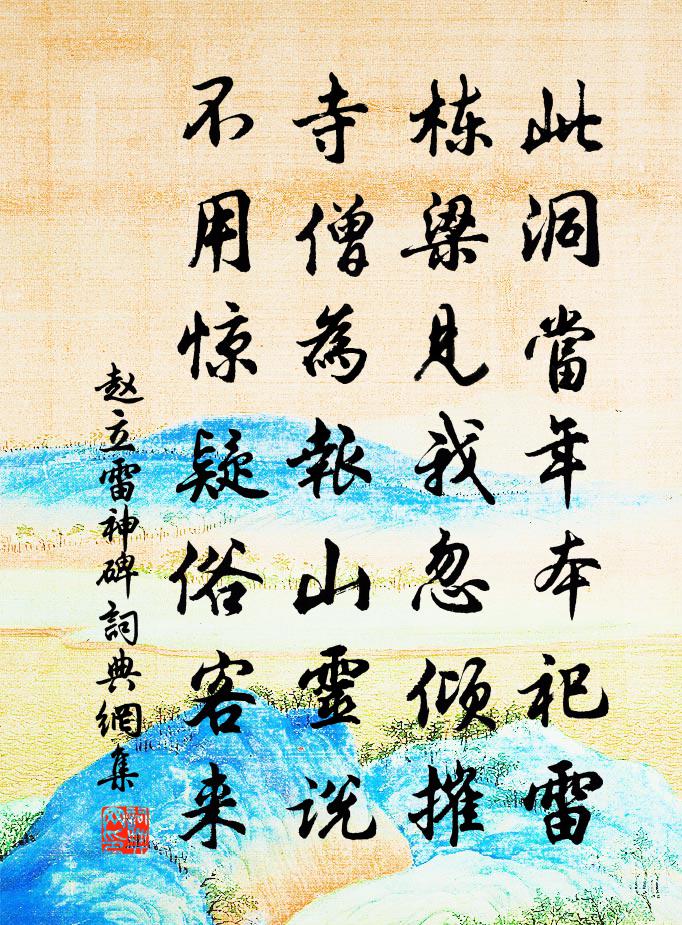 此洞當年本祀雷
栋梁見我忽倾摧
寺僧為報山靈説
不用惊疑俗客来
赵立雷神碑詞典網集